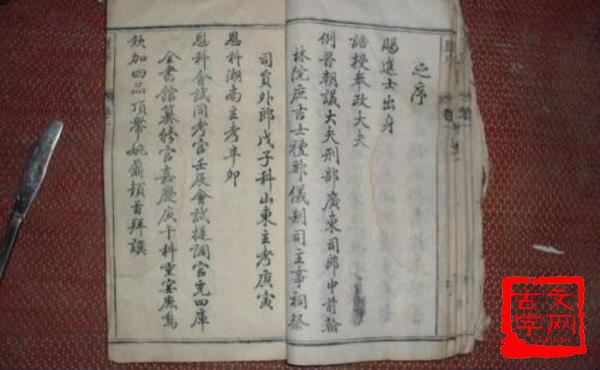 之序
賜進士出身
誥授奉政大夫
例晉朝議大夫刑部廣東司郎中前翰
林院庶吉士禮部儀制司主事祠祭
司員外郎戊子科山東主考庚寅
恩科湖南主考辛卯
恩科會試同考官壬辰會試提調官充四庫
全書館纂修官嘉慶庚午科重宴鹿鳴
欽加四品頂帶姚鼐頓首拜譔
古文字网